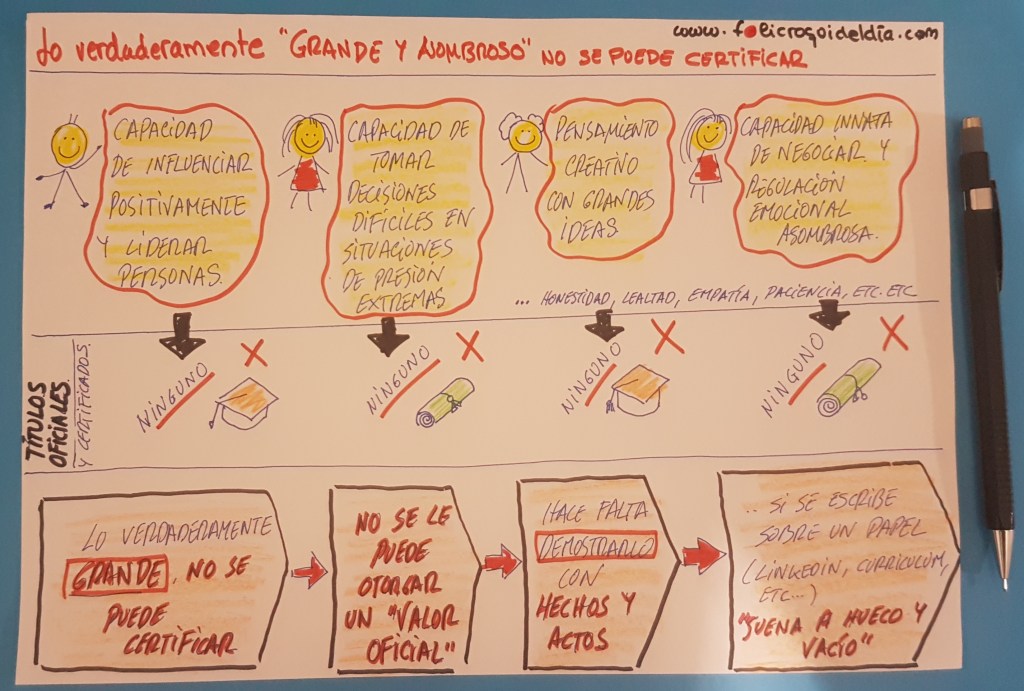 www.felicroquideldía.com
Lo verdaderamente "GRANDE Y ASOMBROSO" NO SE PUEDE CERTIFICAR
CAPACIDAD
DE INFLUENCIAR
POSITIVAMENTE
Y LIDERAR
PERSONAS.
CAPACIDAD DE
TOMAR
DECISIONES
DIFÍCILES EN
SITUACIONES
DE PRESIÓN
EXTREMAS
PENSAMIENTO
CREATIVO
CON GRANDES
IDEAS
CAPACIDAD INNATA
DE NEGOCIAR Y
REGULACIÓN
EMOCIONAL
ASOMBROSA.
... HONESTIDAD, LEALTAD, EMPATÍA, PACIENCIA, ETC. ETC
TÍTULOS
OFICIALES.
Y CERTIFICADOS.
NINGUNO
NINGUNO
NINGUNO
NINGUNO
LO VERDADERAMENTE
GRANDE, NO SE
PUEDE
CERTIFICAR
NO SE LE
PUEDE
OTORGAR
UN "VALOR
OFICIAL"
HACE FALTA
DEMOSTRARLO
CON
HECHOS Y
ACTOS
...SI SE ESCRIBE
SOBRE UN PAPEL
(LINKEDIN, CURRICULUM,
ETC...)
"SUENA A HUECO Y
VACÍO"